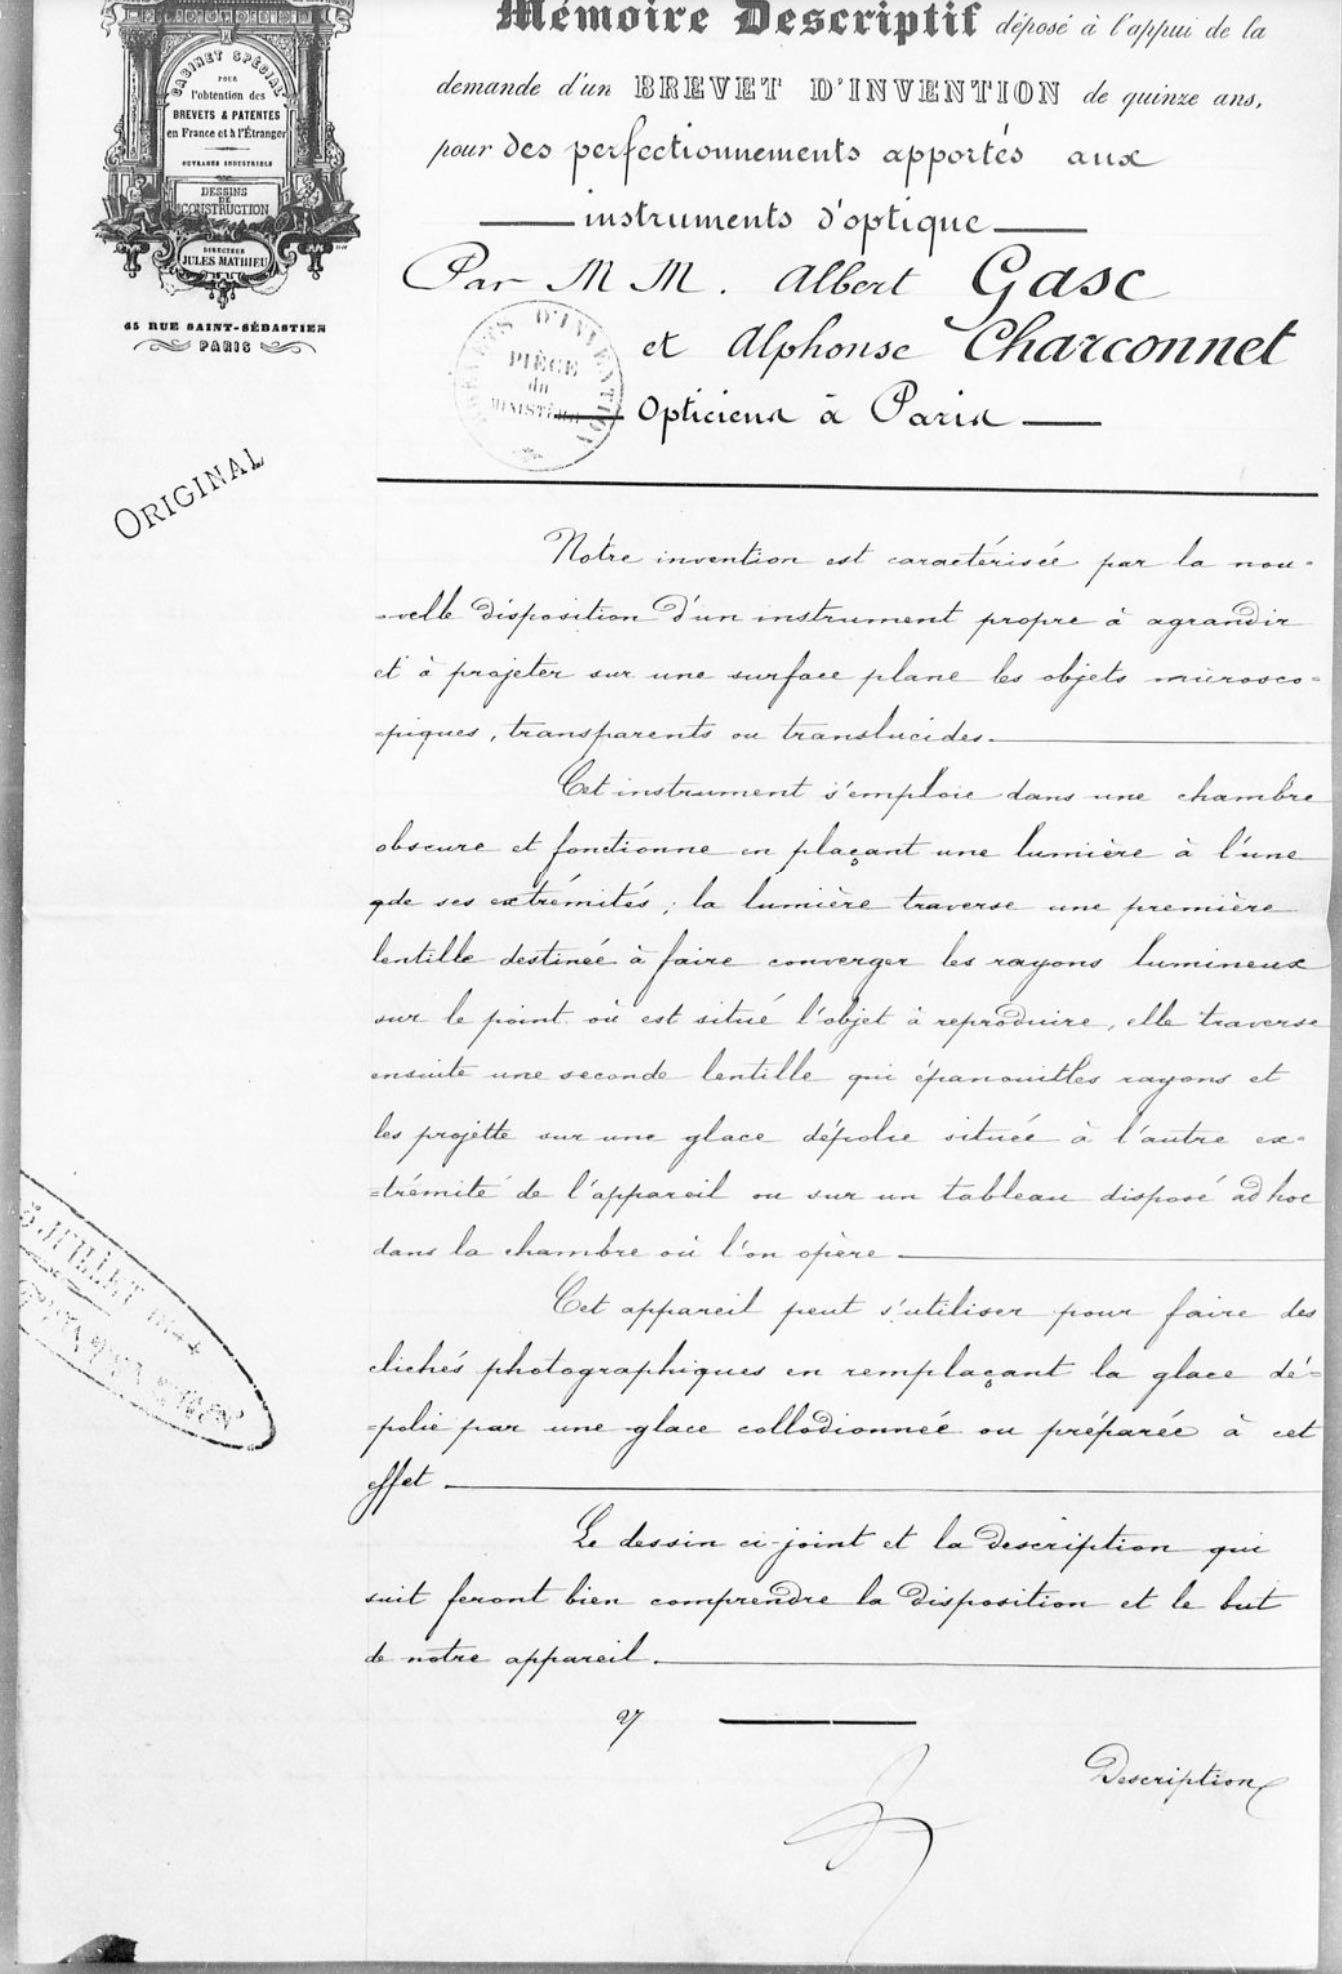 Mémoire Descriptif déposé à l'appui de la
demande d'un BREVET D'INVENTION de quinze ans,
pour des perfectionnements apportés aux
instruments d'optique
Par M M. Albert Gasc
et Alphonse Charconnet
Opticiens à Paris
CABINET SPÉCIAL
POUR
l'obtention des
BREVETS & PATENTES
en France et à l'Étranger
OUVRAGES INDUSTRIELS
DESSINS
DE
CONSTRUCTION
DIRECTEUR
JULES MATHIEU
45 RUE SAINT-SÉBASTIEN
PARIS
BREVETS D'INVENTION
PIÈCE
du
MINISTÈRE
ORIGINAL
Notre invention est caractérisée par la nou-
-velle disposition d'un instrument propre à agrandir
et à projeter sur une surface plane les objets microsco-
-piques, transparents ou translucides.
Cet instrument s'emploie dans une chambre
obscure et fonctionne en plaçant une lumière à l'une
de ses extrémités; la lumière traverse une première
lentille destinée à faire converger les rayons lumineux
sur le point où est situé l'objet à reproduire, elle traverse
ensuite une seconde lentille qui épanouit les rayons et
les projette sur une glace dépolie située à l'autre ex-
=trémité de l'appareil ou sur un tableau disposé ad hoc
dans la chambre où l'on opère
Cet appareil peut s'utiliser pour faire des
clichés photographiques en remplaçant la glace dé-
-polie par une glace collodionnée ou préparée à cet
effet
Le dessin ci-joint et la description qui
suit feront bien comprendre la disposition et le but
de notre appareil.
JUILLET
Description